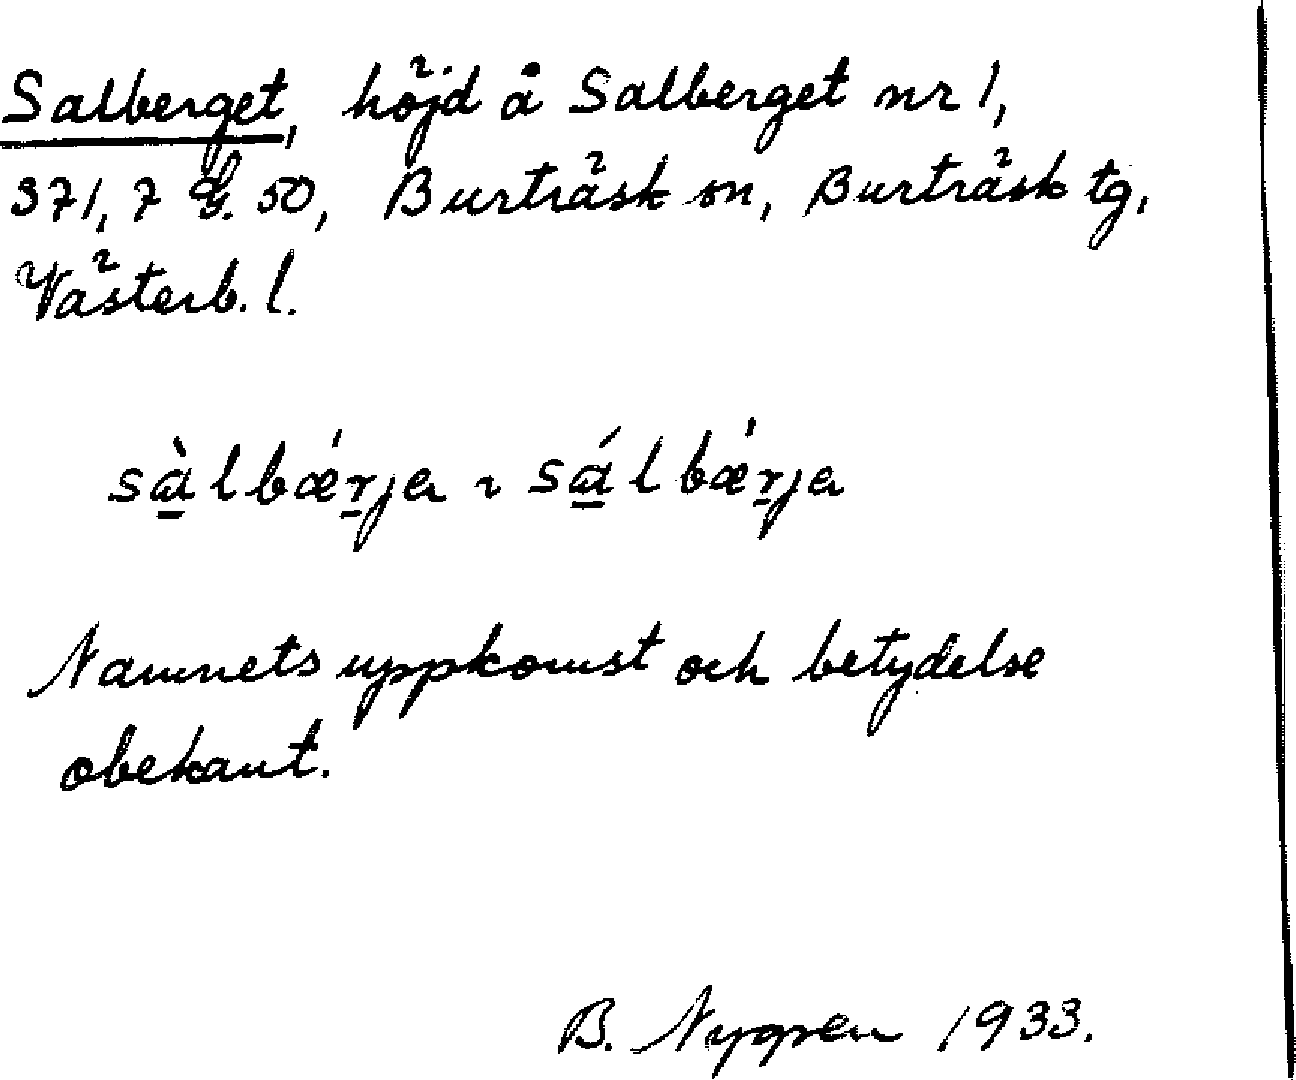 Salberget, höjd å Salberget nr 1,
371, 7 G. 50, Burträsk sn, Burträsk tg,
Västerb. l.
sà̱lbǽṟja ı sá̱lbǽṟja
Namnets uppkomst och betydelse
obekant.
B. Nygren 1933.